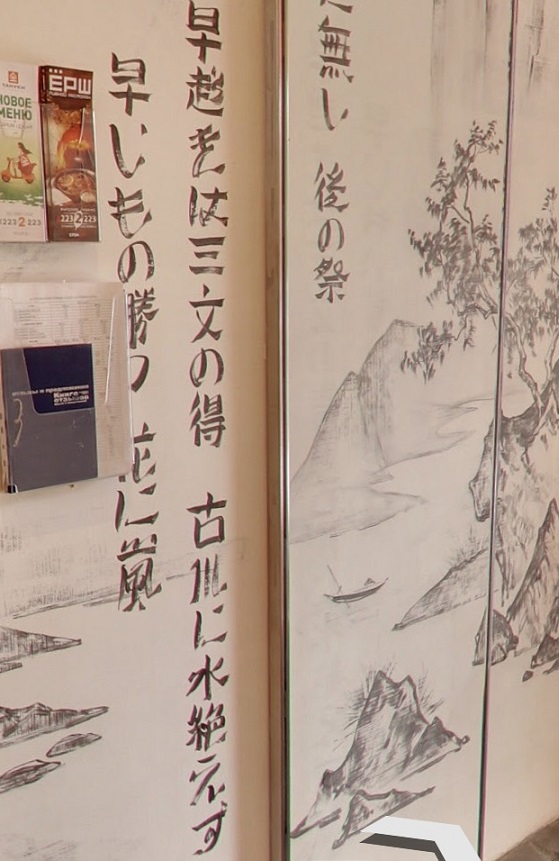 に無し 後の祭
早起きは三文の得 古川に水絶えず
早いもの勝つ 花に嵐
НОВОЕ
МЕНЮ
223 2 223
ЕРШ
223 2 223
Книга
отзывов